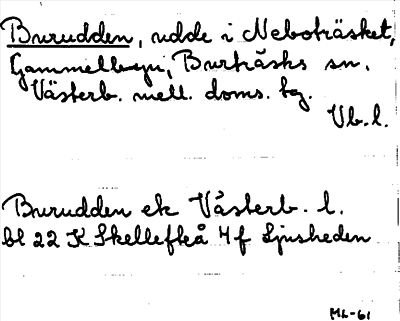 Burudden, udde i Neboträsket,
Gammelbyn, Burträsks sn.
Västerb. mell. doms. tg.
Vb. l.
Burudden ek Västerb. l.
bl 22 K Skellefteå 4f Ljusheden
ML-61